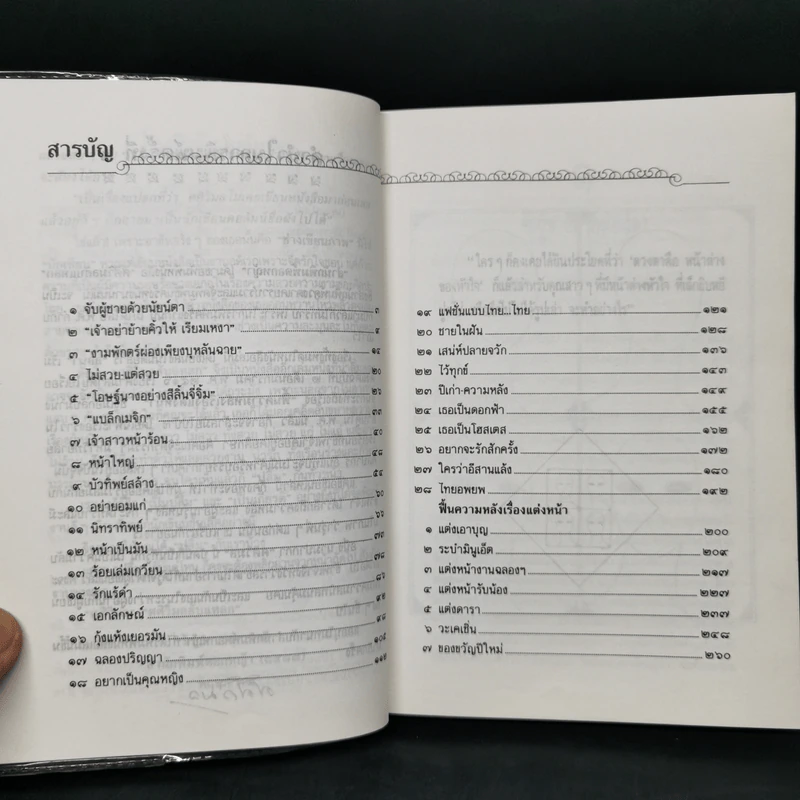 สารบัญ
๑ จับผู้ชายด้วยนัยน์ตา ๓
๒ "เจ้าอย่าย้ายคิ้วให้ เรียมเหงา" ๙
๓ "งามพักตร์ผ่องเพียงบุหลันฉาย" ๑๔
๔ ไม่สวย-แต่สวย ๒๐
๕ "โอษฐ์นางอย่างสีลิ้นจี่จิ้ม" ๒๕
๖ "แบล็กเมจิก" ๓๓
๗ เจ้าสาวหน้าร้อน ๔๐
๘ หน้าใหญ่ ๔๘
๙ บัวทิพย์สล้าง ๕๔
๑๐ อย่ายอมแก่ ๖๐
๑๑ นิทราทิพย์ ๖๖
๑๒ หน้าเป็นมัน ๗๓
๑๓ ร้อยเล่มเกวียน ๗๘
๑๔ รักแร้ดำ ๘๖
๑๕ เอกลักษณ์ ๙๒
๑๖ กุ้งแห้งเยอรมัน ๙๘
๑๗ ฉลองปริญญา ๑๐๕
๑๘ อยากเป็นคุณหญิง ๑๑๒
๑๙ แฟชั่นแบบไทย...ไทย ๑๒๑
๒๐ ชายในฝัน ๑๒๘
๒๑ เสน่ห์ปลายจวัก ๑๓๖
๒๒ ไว้ทุกข์ ๑๔๓
๒๓ ปีเก่า-ความหลัง ๑๔๙
๒๔ เธอเป็นดอกฟ้า ๑๕๕
๒๕ เธอเป็นโฮสเตส ๑๖๒
๒๖ อยากจะรักสักครั้ง ๑๗๒
๒๗ ใครว่าอีสานแล้ง ๑๘๐
๒๘ ไทยอพยพ ๑๙๒
ฟื้นความหลังเรื่องแต่งหน้า
๑ แต่งเอาบุญ ๒๐๐
๒ ระบำมินูเอ็ต ๒๐๙
๓ แต่งหน้างานฉลองฯ ๒๑๗
๔ แต่งหน้ารับน้อง ๒๒๗
๕ แต่งดารา ๒๓๗
๖ วะเคเชิ่น ๒๔๘
๗ ของขวัญปีใหม่ ๒๖๐